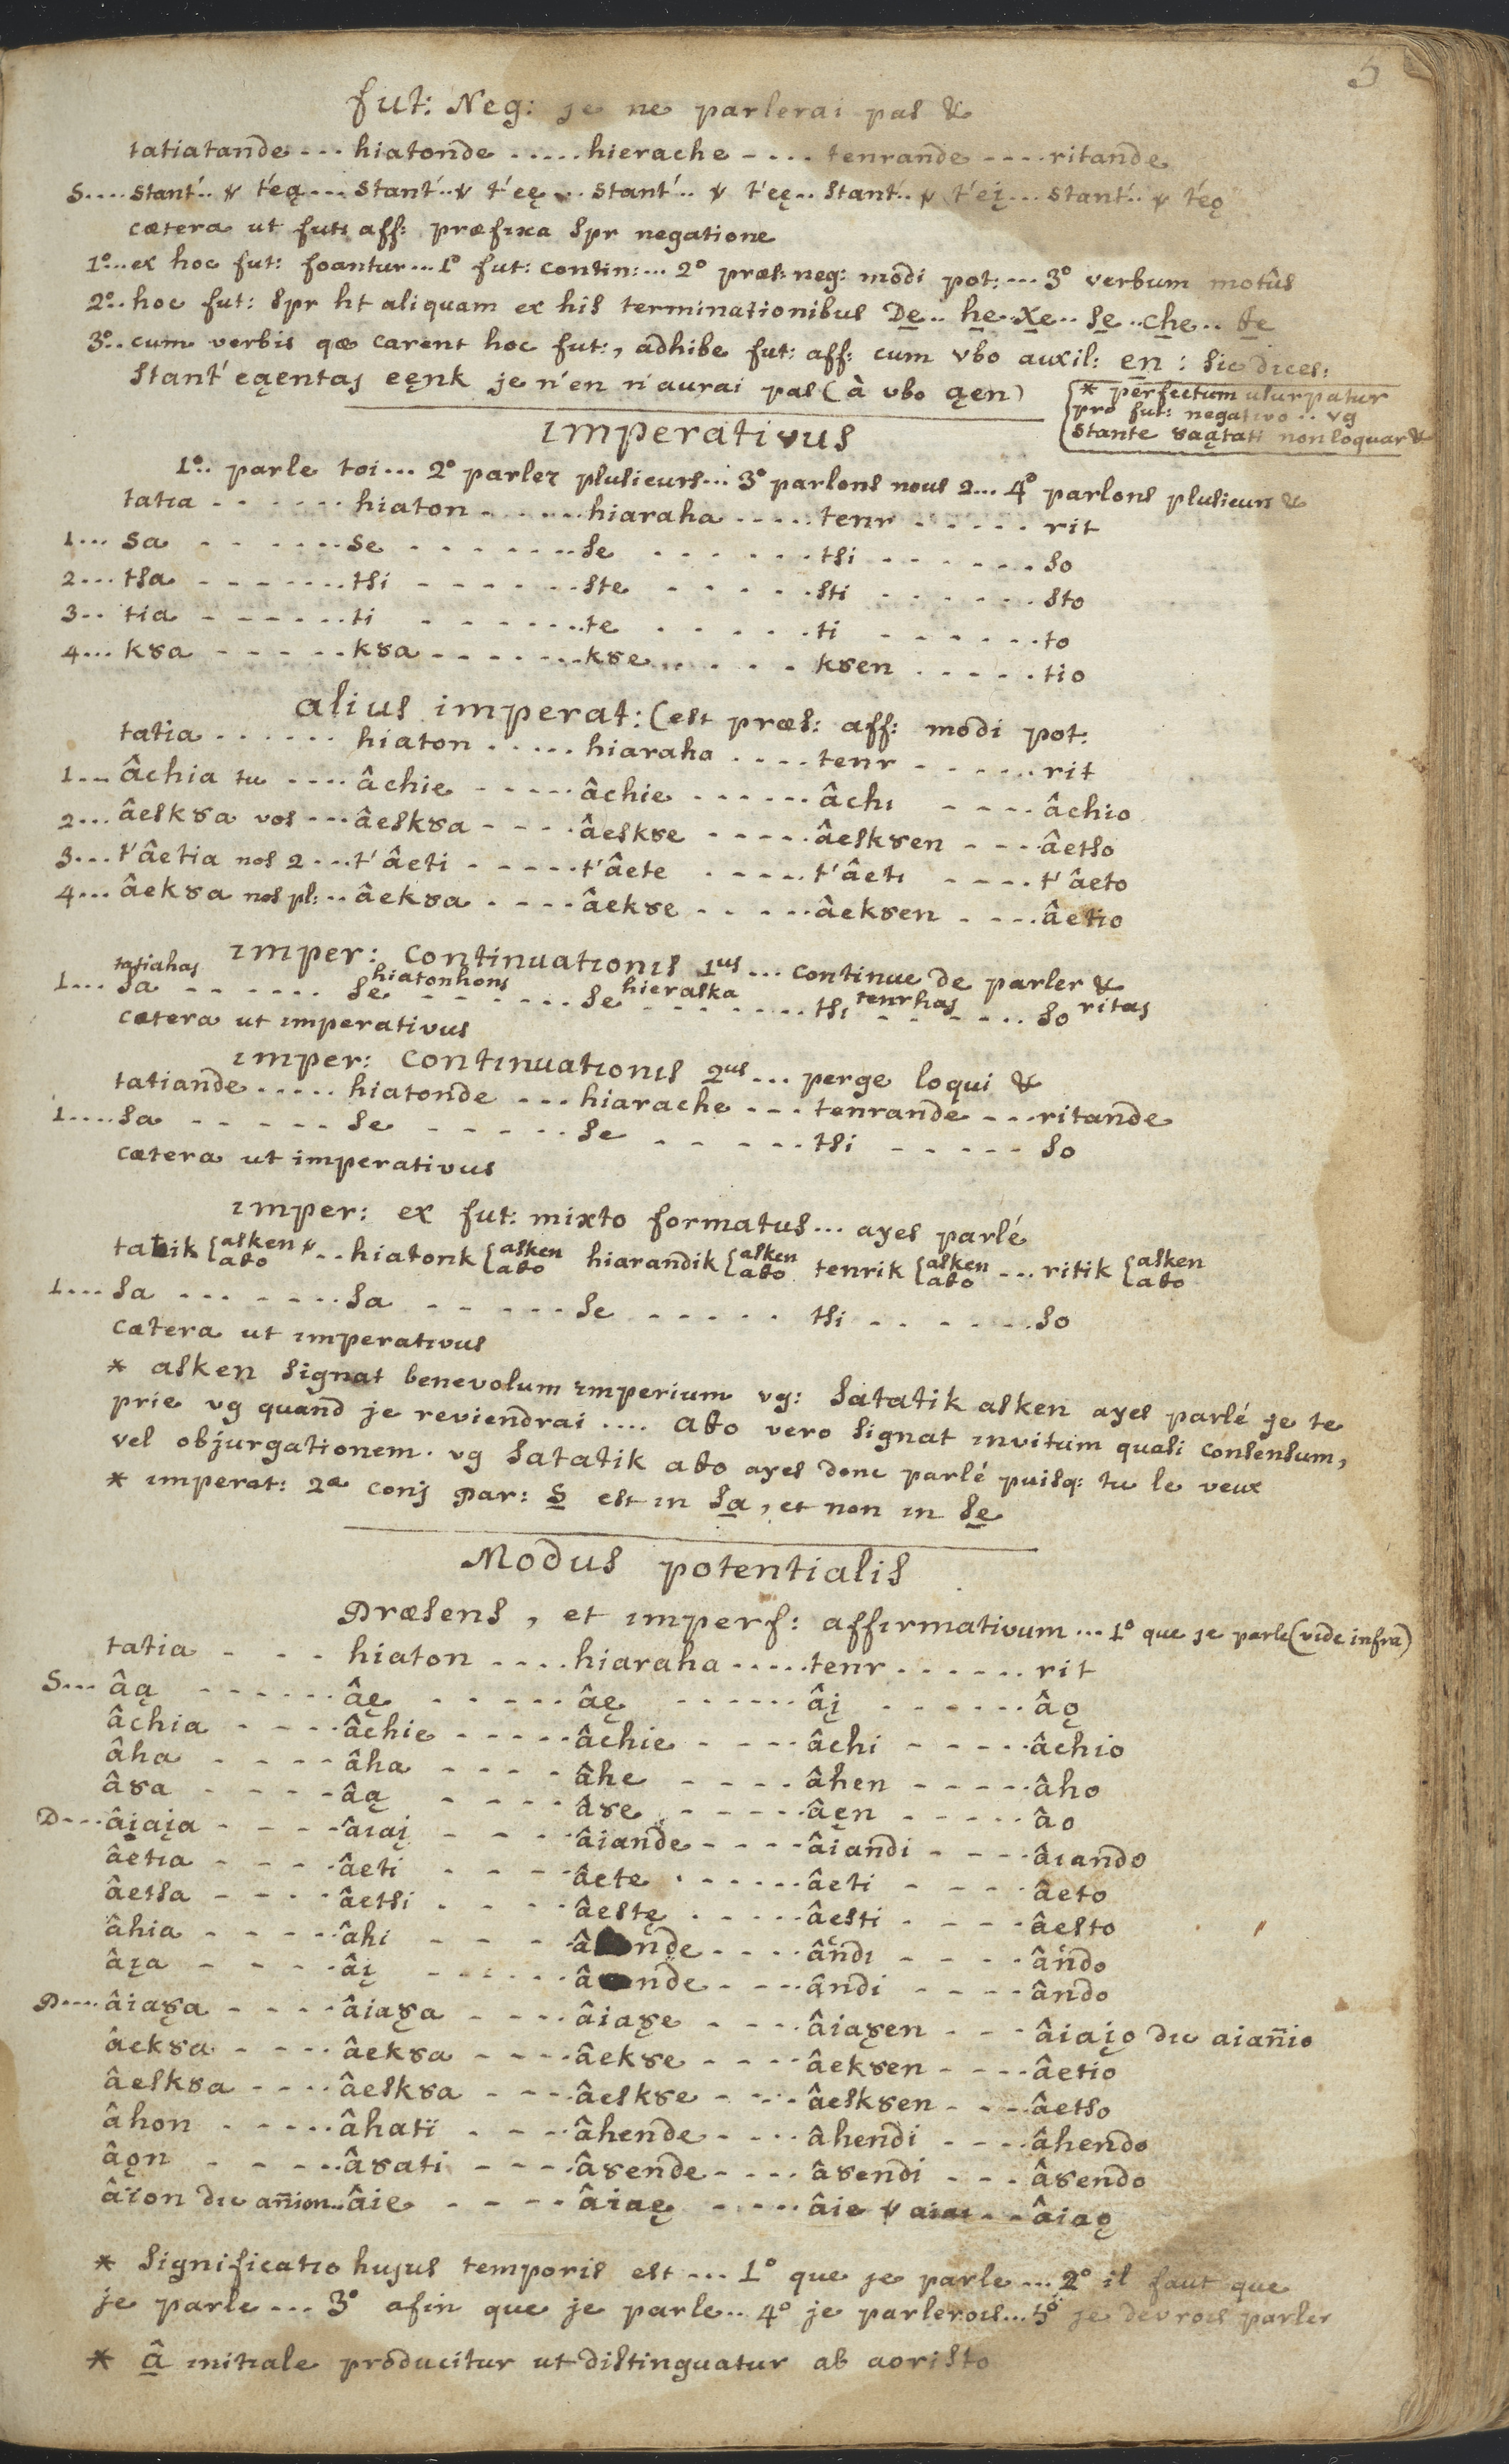 5
fut: Neg: je ne parlerai pas &
tatiatande --- hiatonde ..... hierache - .... tenrande - .... ritande
S.... stant'.. v t'eą ... stant'.. v t'eę ... stant'.. v t'eę.. stant'.. v t'eį ... stant'.. v t'eǫ
cætera ut futi aff: præfixa spr negatione
1°... ex hoc fut: foantur... 1° fut: contin: ... 2° præs: neg: modi pot: ... 3° verbum motûs
2°.. hoc fut: spr ht aliquam ex his terminationibus De .. he .. Xe .. se .. che .. ȣe
3°.. cum verbis qæ carent hoc fut:, adhibe fut: aff: cum vbo auxil: en : sic dices:
stant' eąentas eęnk je n'en n'aurai pas (à vbo ąen)
* perfectum usurpatur
pro fut: negativo .. vg
stante ȣaątati non loquar &
imperativus
1°.. parle toi ... 2° parlez plusieurs ... 3° parlons nous 2 ... 4° parlons plusieurs &
tatia - - - - - - hiaton - - - - - hiaraha - - - - - tenr - - - - - - rit
1... sa - - - - - - se - - - - - - - se - - - - - - tsi - - - - - - so
2... tsa - - - - - - tsi - - - - - - ste - - - - - sti - - - - - - sto
3... tia - - - - - - ti - - - - - - te - - - - - ti - - - - - - to
4... kȣa - - - - - kȣa - - - - - - kȣe - - - - - kȣen - - - - - tio
alius imperat: (est præs: aff: modi pot:
tatia - - - - - - hiaton - - - - - hiaraha - - - - tenr - - - - - - rit
1... âchia tu - - - - âchie - - - - - âchie - - - - - - âchi - - - - âchio
2... âeskȣa vos --- âeskȣa - - - - âeskȣe - - - - - âeskȣen - - - âetso
3... t'âetia nos 2 --- t'âeti - - - - - t'âete - - - - - t'âeti - - - - t'âeto
4... âekȣa nos pl: .. âekȣa - - - - âekȣe - - - - - âekȣen - - - - âetio
imper: continuationis 1us ... continue de parler &
tatiahas hiatonhons hieraska tenrhas ritas
1... sa - - - - - - se - - - - - - se - - - - - - - tsi - - - - - - so
cætera ut imperativus
imper: continuationis 2us ... perge loqui &
tatiande ..... hiatonde --- hiarache --- tenrande --- ritande
1.... sa - - - - - se - - - - - - se - - - - - - tsi - - - - - so
cætera ut imperativus
imper: ex fut: mixto formatus... ayes parlé
tatik {asken v aȣo .. hiatonk {asken aȣo hiarandik {asken aȣo tenrik {asken aȣo ... ritik {asken aȣo
1.... sa - - - - - - - sa - - - - - - se - - - - - tsi - - - - - - so
cætera ut imperativus
* asken signat benevolum imperium vg: satatik asken ayes parlé je te
prie vg quand je reviendrai .... aȣo vero signat invitum quasi consensum,
vel objurgationem. vg satatik aȣo ayes donc parlé puisq: tu le veux
* imperat: 2æ conj par: S est in sa, et non in se
Modus potentialis
Præsens, et imperf: affirmativum ... 1° que je parle (vide infra)
tatia - - - hiaton - - - - hiaraha - - - - - tenr - - - - - - rit
S... âą - - - - - - âę - - - - - âę - - - - - - âį - - - - - - âǫ
âchia - - - - âchie - - - - - âchie - - - - âchi - - - - - âchio
âha - - - - âha - - - - âhe - - - - âhen - - - - - âho
âȣa - - - - âą - - - - âȣe - - - - - âęn - - - - - âo
D... âįaįa - - - - âiaį - - - - âiande - - - - âiandi - - - - âiando
âetia - - - - âeti - - - - âete - - - - - - âeti - - - - âeto
âetsa - - - - âetsi - - - - âestę - - - - - âesti - - - - âesto
âhia - - - - - âhi - - - - ânde - - - - ândi - - - - ândo
âįa - - - - âį - - - - - - ânde - - - - ândi - - - - ândo
D.... âiaȣa - - - - âiaȣa - - - - âiaȣe - - - - âiaȣen - - - âiaįo dic aiañio
âekȣa - - - - âekȣa - - - - âekȣe - - - - âekȣen - - - - âetio
âeskȣa - - - - âeskȣa - - - âeskȣe - - - - âeskȣen - - - âetso
âhon - - - - - âhatï - - - - âhende - - - - âhendi - - - - âhendo
âǫn - - - - - âȣati - - - - âȣende - - - - âȣendi - - - âȣendo
âïon dic añion .. âie - - - - âiaę - - - - - âie v aiaę - - âiaǫ
* significatio hujus temporis est ... 1° que je parle ... 2° il faut que
je parle ... 3° afin que je parle .. 4° je parlerois ... 5° je devrois parler
* â initiale producitur ut distinguatur ab aoristo